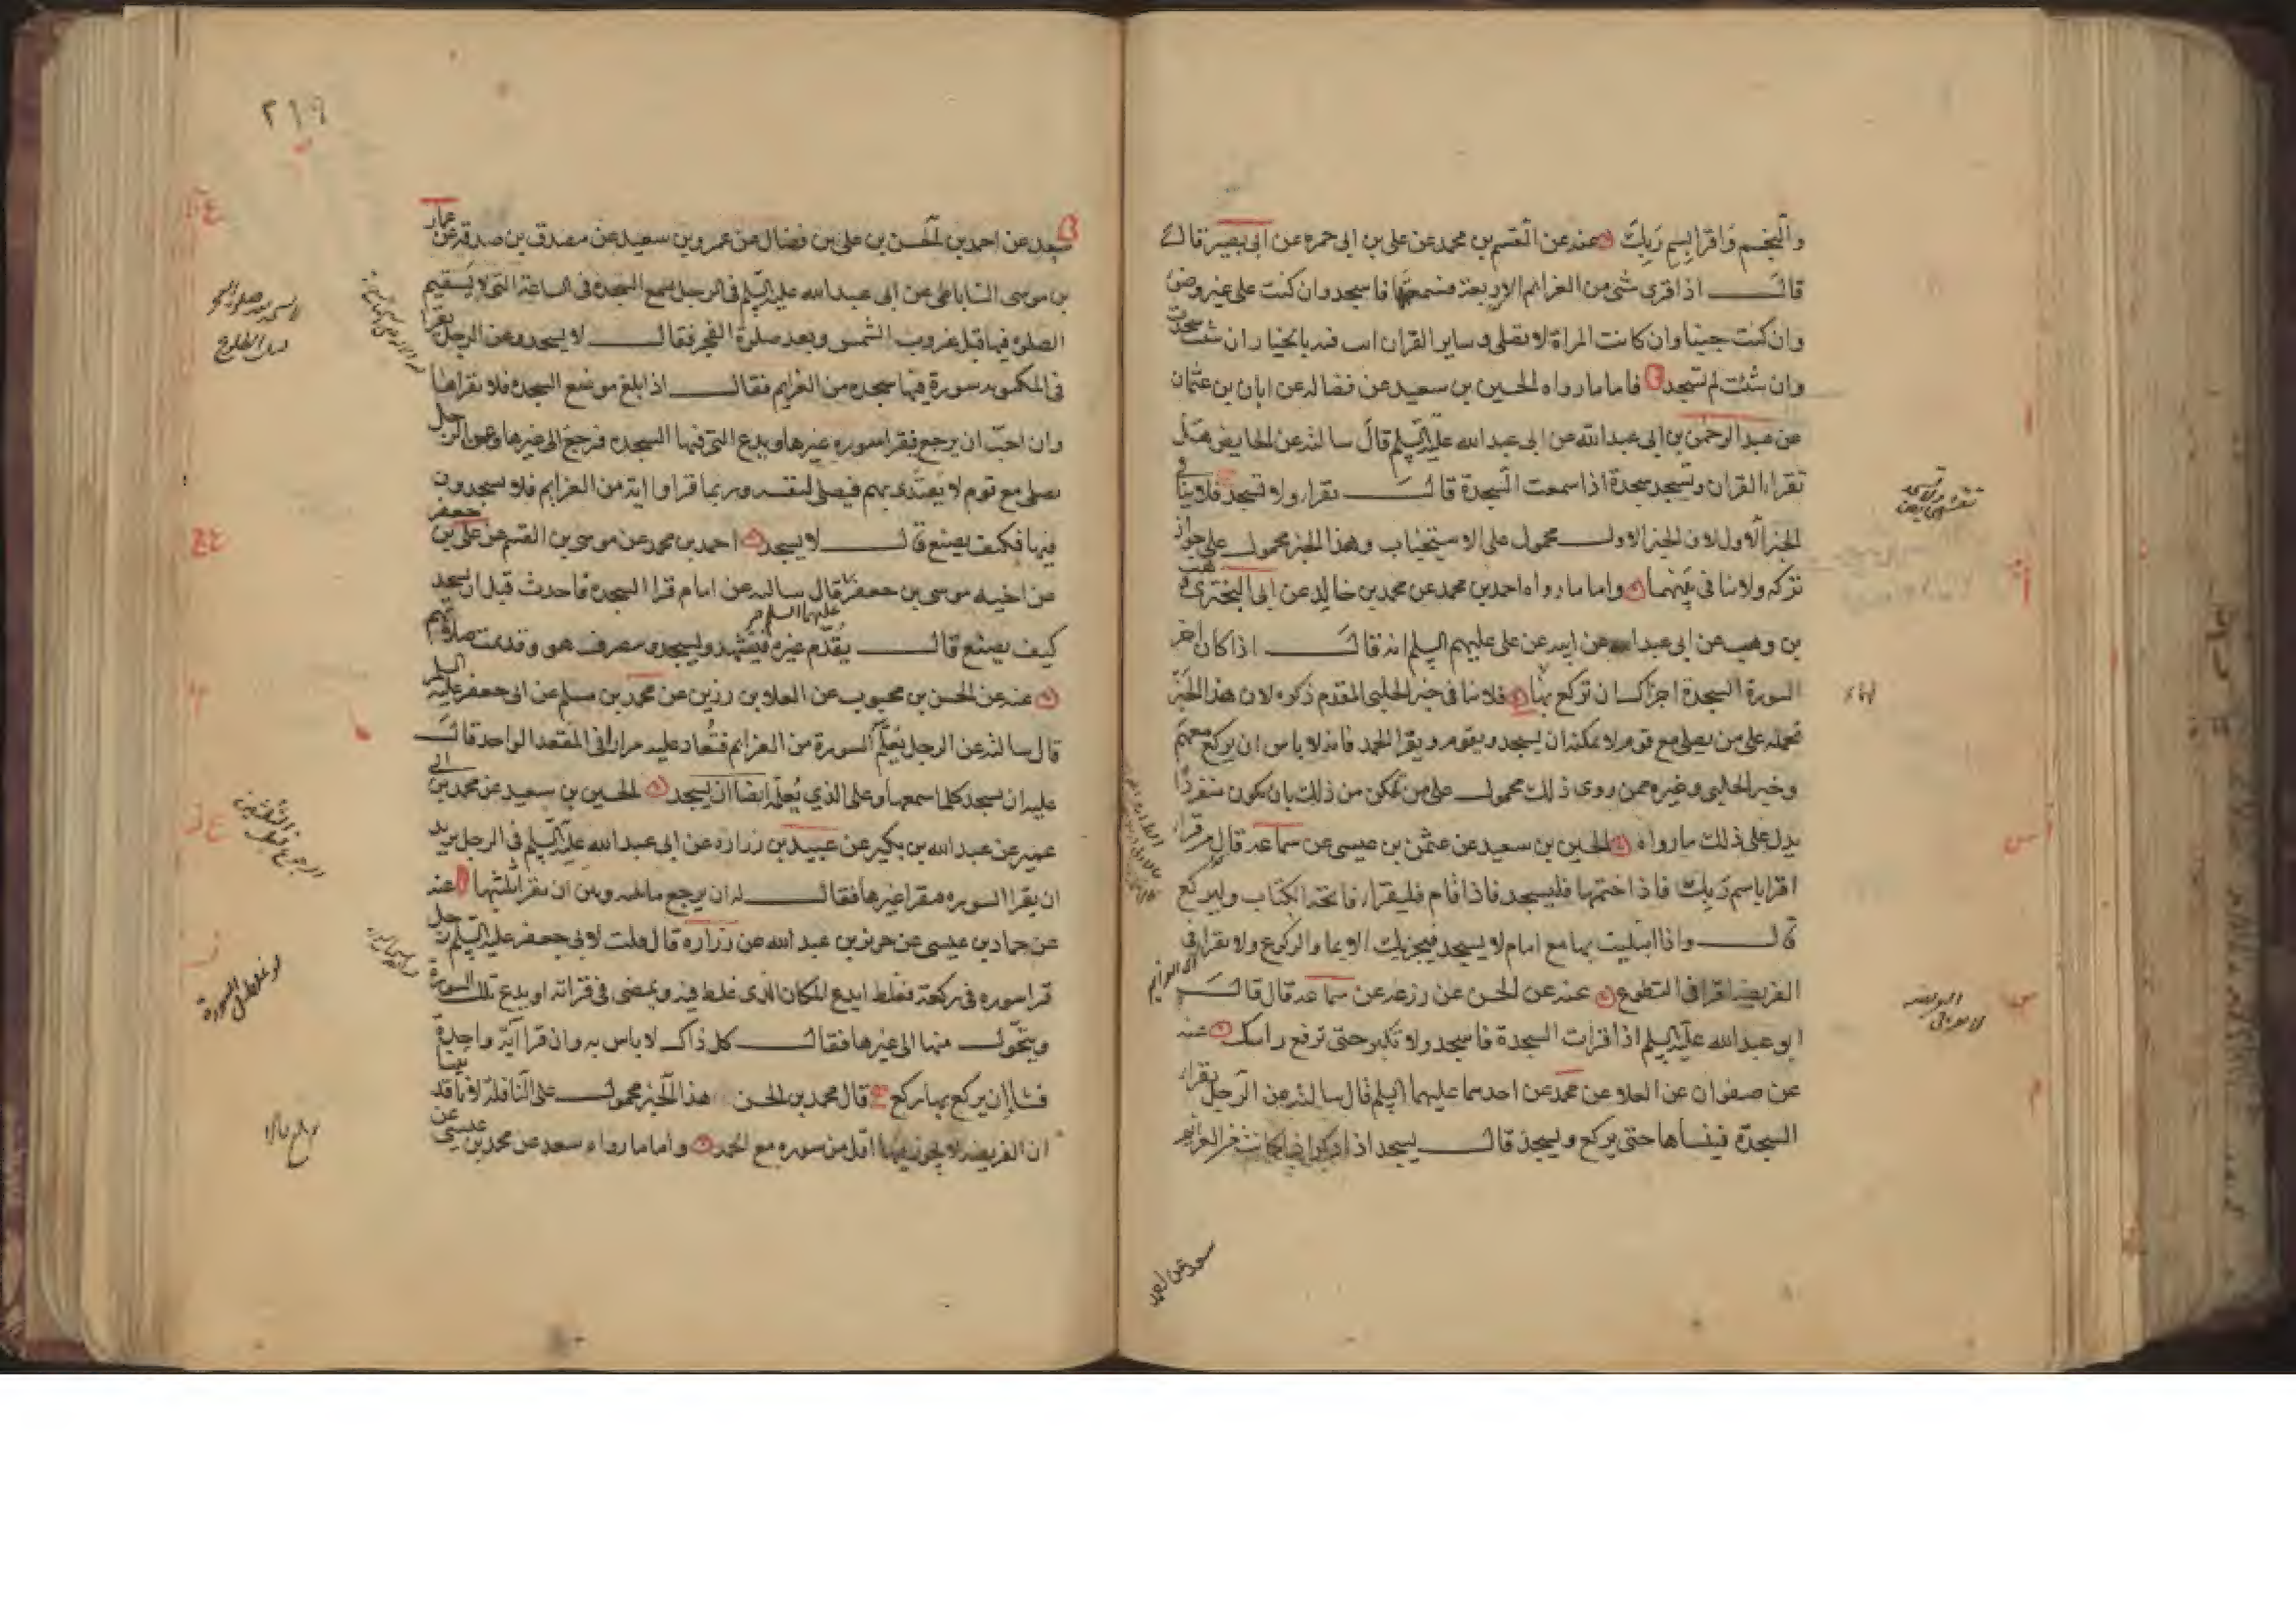 والنجم واقرا باسم ربك عنه عن القسم بن محمد عن علي بن ابي حمزه عن ابي بصير قال
قال اذا قرئ شئ من العزايم الاربعة فسمعتها فاسجد وان كنت على غير وضوء
وان كنت جنبا وان كانت المراة لا تصلى وساير القران انت فيه بالخيار ان شئت سجدت
وان شئت لم تسجد فاما ما رواه الحسين بن سعيد عن فضاله عن ابان بن عثمان
عن عبد الرحمن بن ابي عبد الله عن ابي عبد الله عليه السلم قال سالته عن الحايض هل
تقراء القران وتسجد سجدة اذا سمعت السجدة قال تقراء ولا تسجد فلا ينافى
الخبر الاول لان الخبر الاول محمول على الاستحباب وهذا الخبر محمول على جواز
تركه ولا تنافى بينهما واما ما رواه احمد بن محمد عن محمد بن خالد عن ابى البخترى وهب
بن وهب عن ابي عبد الله عن ابيه عن على عليهم السلم انه قال اذا كان اخر
السورة السجدة اجزاك ان تركع بها فلا ينافى خبر الحلبي المقدم ذكره لان هذا الخبر
نحمله على من يصلى مع قوم لا يمكنه ان يسجد ويقوم ويقرا الحمد فانه لا باس ان يركع معهم
وخبر الحلبي وغيره ممن روى ذلك محمول على من تمكن من ذلك بان يكون منفردا
يدل على ذلك ما رواه الحسين بن سعيد عن عثمن بن عيسى عن سماعه قال من قراء
اقرا باسم ربك فاذا ختمها فليسجد فاذا قام فليقراء فاتحة الكتاب وليركع
قال واذا ابتليت بها مع امام لا يسجد فيجزيك الايماء والركوع ولا تقراء فى
الفريضة اقرا فى التطوع عنه عن الحسن عن زرعه عن سماعه قال قال
ابو عبد الله عليه السلم اذا قرات السجدة فاسجد ولا تكبر حتى ترفع راسك عنه
عن صفوان عن العلا عن محمد عن احدهما عليهما السلم قال سالته عن الرجل يقراء
السجدة فينساها حتى يركع ويسجد قال يسجد اذا ذكر اذا كانت من العزايم
سعد عن احمد
٢١٩
سعد عن احمد بن الحسن بن على بن فضال عن عمرو بن سعيد عن مصدق بن صدقه عن عمار
بن موسى الساباطى عن ابى عبد الله عليه السلم فى الرجل يسمع السجدة فى الساعة التى لا يستقيم
الصلوة فيها قبل غروب الشمس وبعد صلوة الفجر فقال لا يسجد وعن الرجل يقرا
فى المكتوبه سورة فيها سجده من العزايم فقال اذا بلغ موضع السجده فلا يقراها
وان احب ان يرجع فيقرا سوره غيرها ويدع التى فيها السجده فيرجع الى غيرها وعن الرجل
يصلى مع قوم لا يقتدى بهم فيصلى لنفسه وربما قراوا اية من العزايم فلا يسجدون
فيها فكيف يصنع قال لا يسجد احمد بن محمد عن موسى بن القسم عن على بن جعفر
عن اخيه موسى بن جعفر قال سالته عن امام قرا السجده فاحدث قبل ان يسجد
عليهما السلم
كيف يصنع قال يقدم غيره فيتشهد ويسجد وينصرف هو وقد تمت صلاتهم
عنه عن الحسن بن محبوب عن العلا بن رزين عن محمد بن مسلم عن ابى جعفر عليه السلم
قال سالته عن الرجل يعلم السورة من العزايم فتعاد عليه مرارا فى المقعد الواحد قال
عليه ان يسجد كلما سمعها وعلى الذي يعلمه ايضا ان يسجد الحسين بن سعيد عن محمد بن ابى
عمير عن عبد الله بن بكير عن عبيد بن زراره عن ابى عبد الله عليه السلم فى الرجل يريد
ان يقرا السوره فيقرا غيرها فقال له ان يرجع ما بينه وبين ان يقرا ثلثيها عنه
عن حماد بن عيسى عن حريز بن عبد الله عن زراره قال قلت لابى جعفر عليه السلم رجل
قرا سوره فى ركعة فغلط ايدع المكان الذى غلط فيه ويمضى فى قراته او يدع تلك السورة
ويتحول منها الى غيرها فقال كل ذلك لا باس به وان قرا آية واحدة
فشاء ان يركع بها ركع قال محمد بن الحسن هذا الخبر محمول على النافلة لانا قد بينا
ان الفريضه لا يجوز فيها اقل من سوره مع الحمد واما ما رواه سعد عن محمد بن عيسى عن